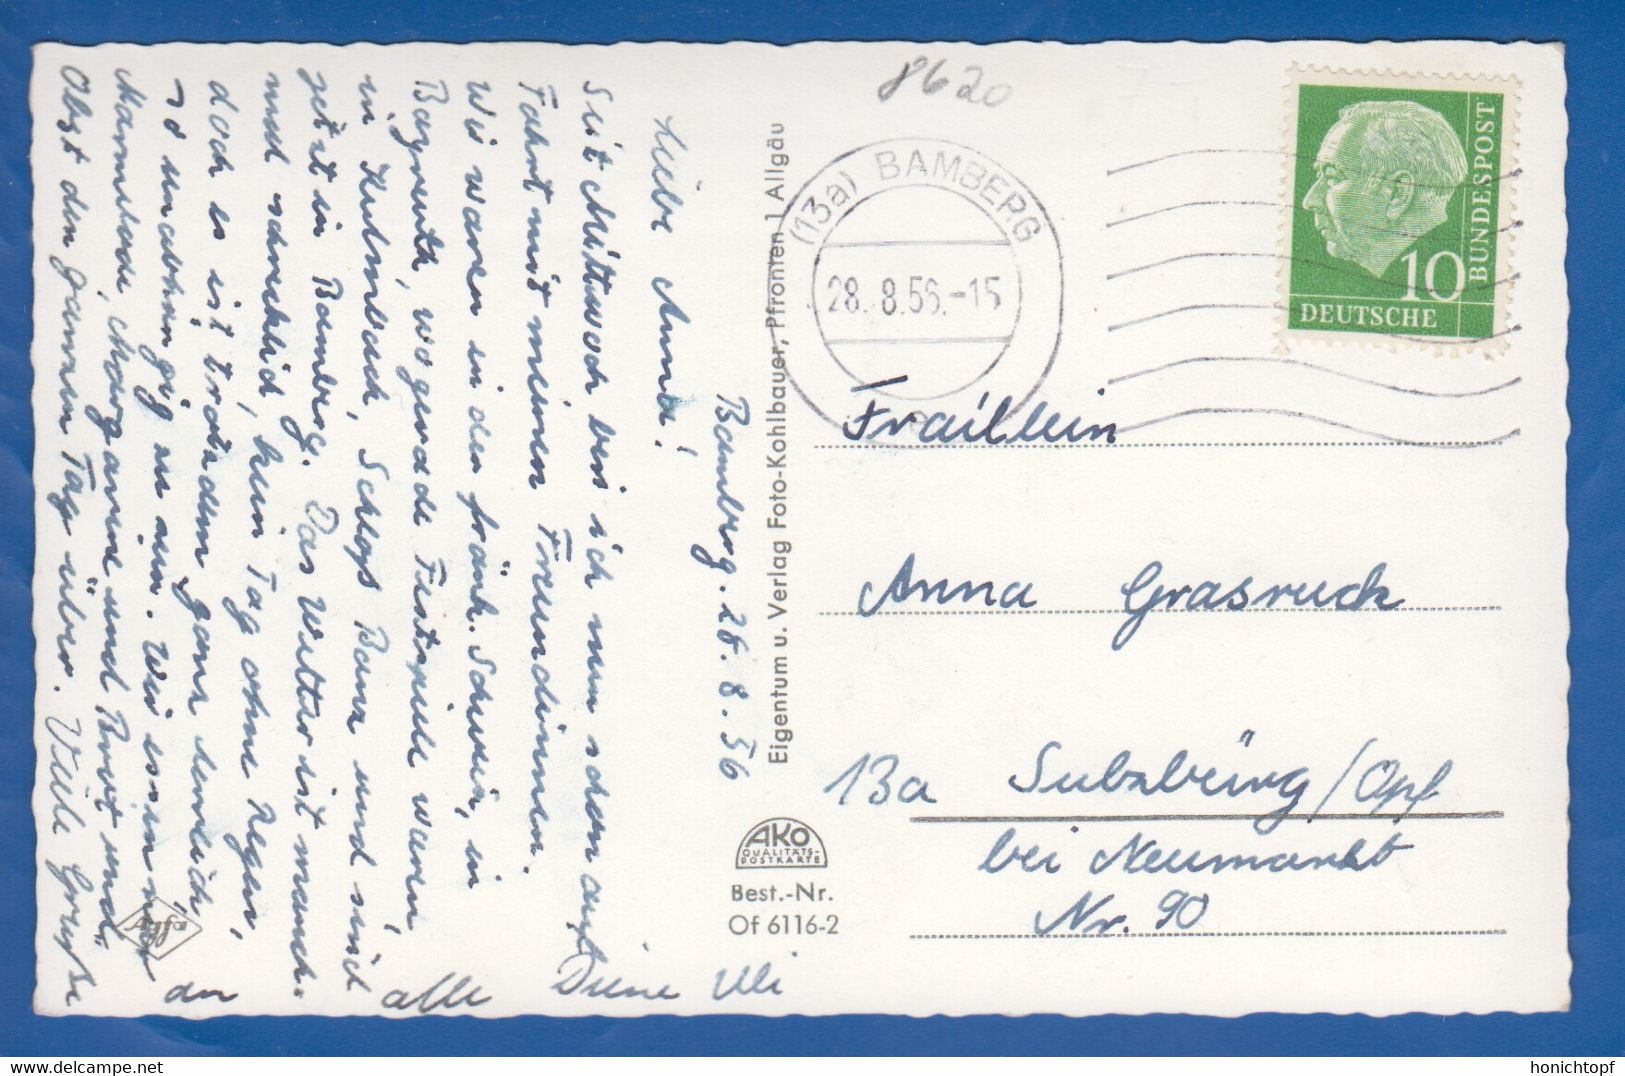 Bamberg. 28.8.56
Liebe Anna!
Seit Mittwoch bin ich nun schon auf
Fahrt mit meinen Freundinnen.
Wir waren in der fränk. Schweiz, in
Bayreuth, wo gerade Festspiele waren,
in Kulmbach, Schloß Banz und sind
jetzt in Bamberg. Das Wetter ist manch-
mal schrecklich, kein Tag ohne Regen,
doch es ist trotzdem ganz herrlich,
so unabhängig zu sein. Wir essen nur
Marmelade, Margarine und Brot und
Obst den ganzen Tag über. Viele Grüße
an alle Deine Uli
8620
(13a) BAMBERG
28. 8.56.-15
10
DEUTSCHE
BUNDESPOST
Eigentum u. Verlag Foto-Kohlbauer, Pfronten 1 Allgäu
Fräulein
Anna Grasruck
13a Sulzbürg/Opf
bei Neumarkt
Nr. 90
AKO
QUALITÄTS-
POSTKARTE
Best.-Nr.
Of 6116-2
Agfa
www.delcampe.net
honichtopf